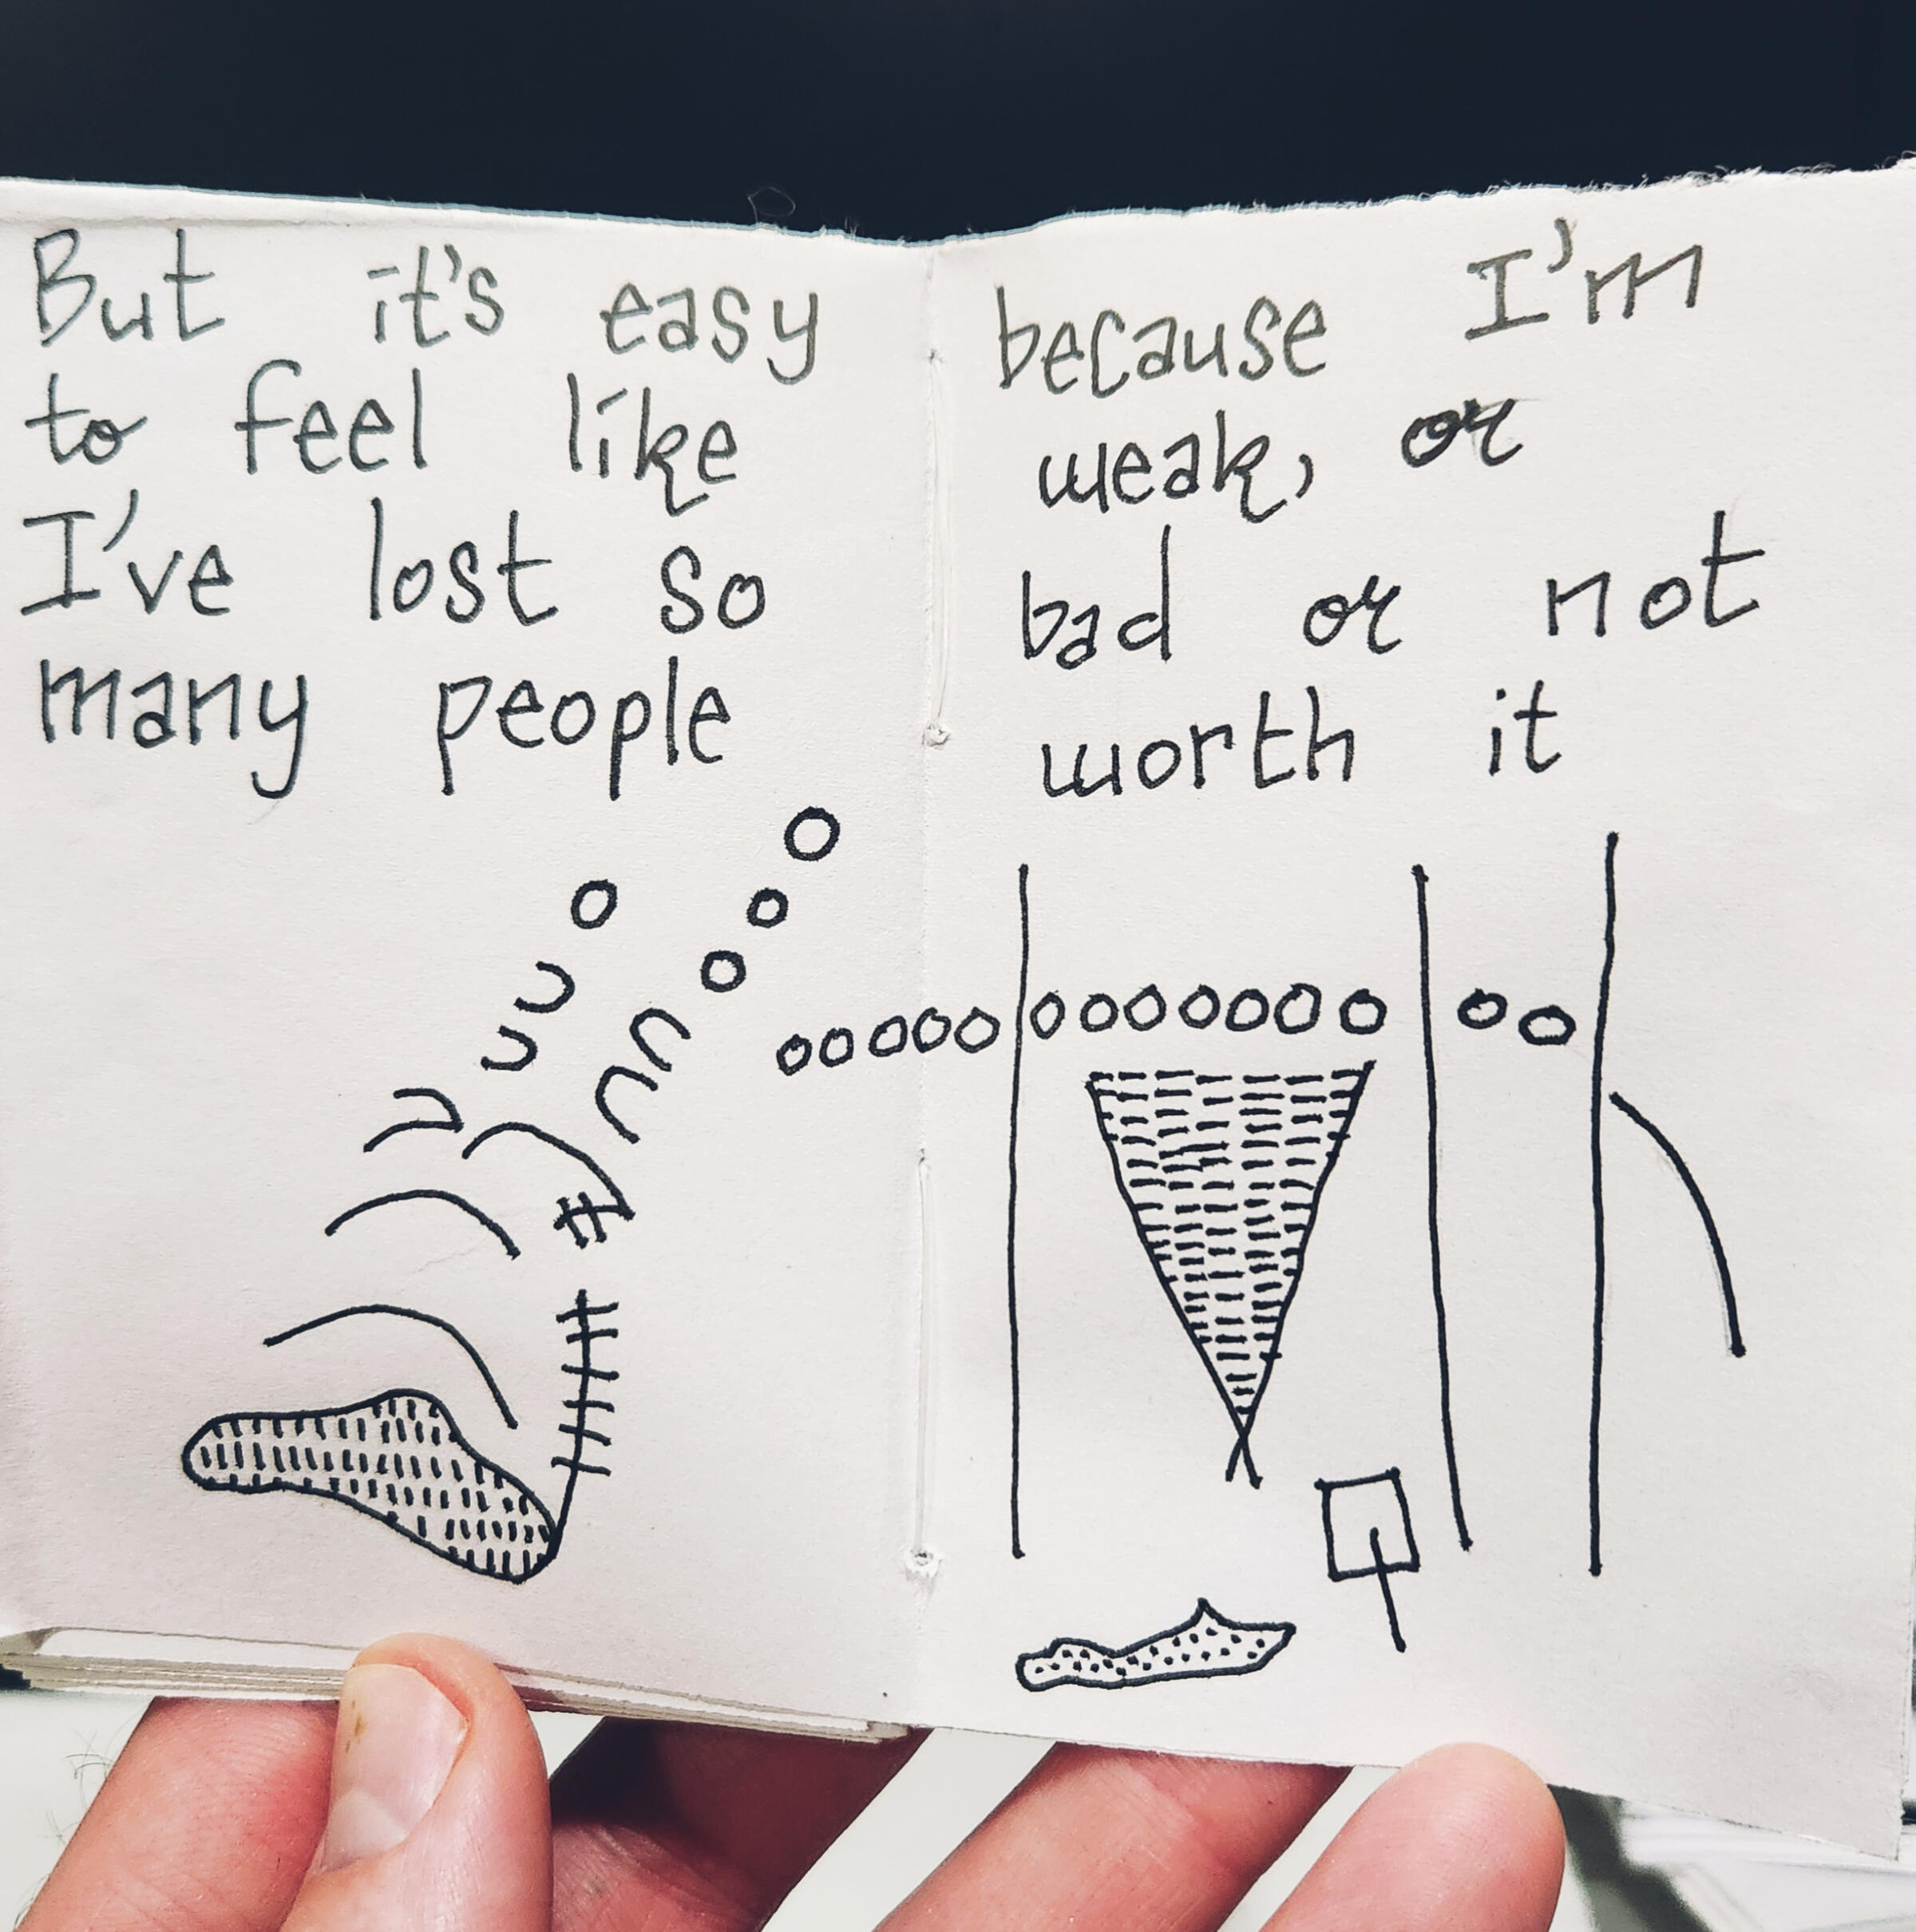 But it's easy
to feel like
I've lost so
many people
because I'm
weak, or
bad or not
worth it